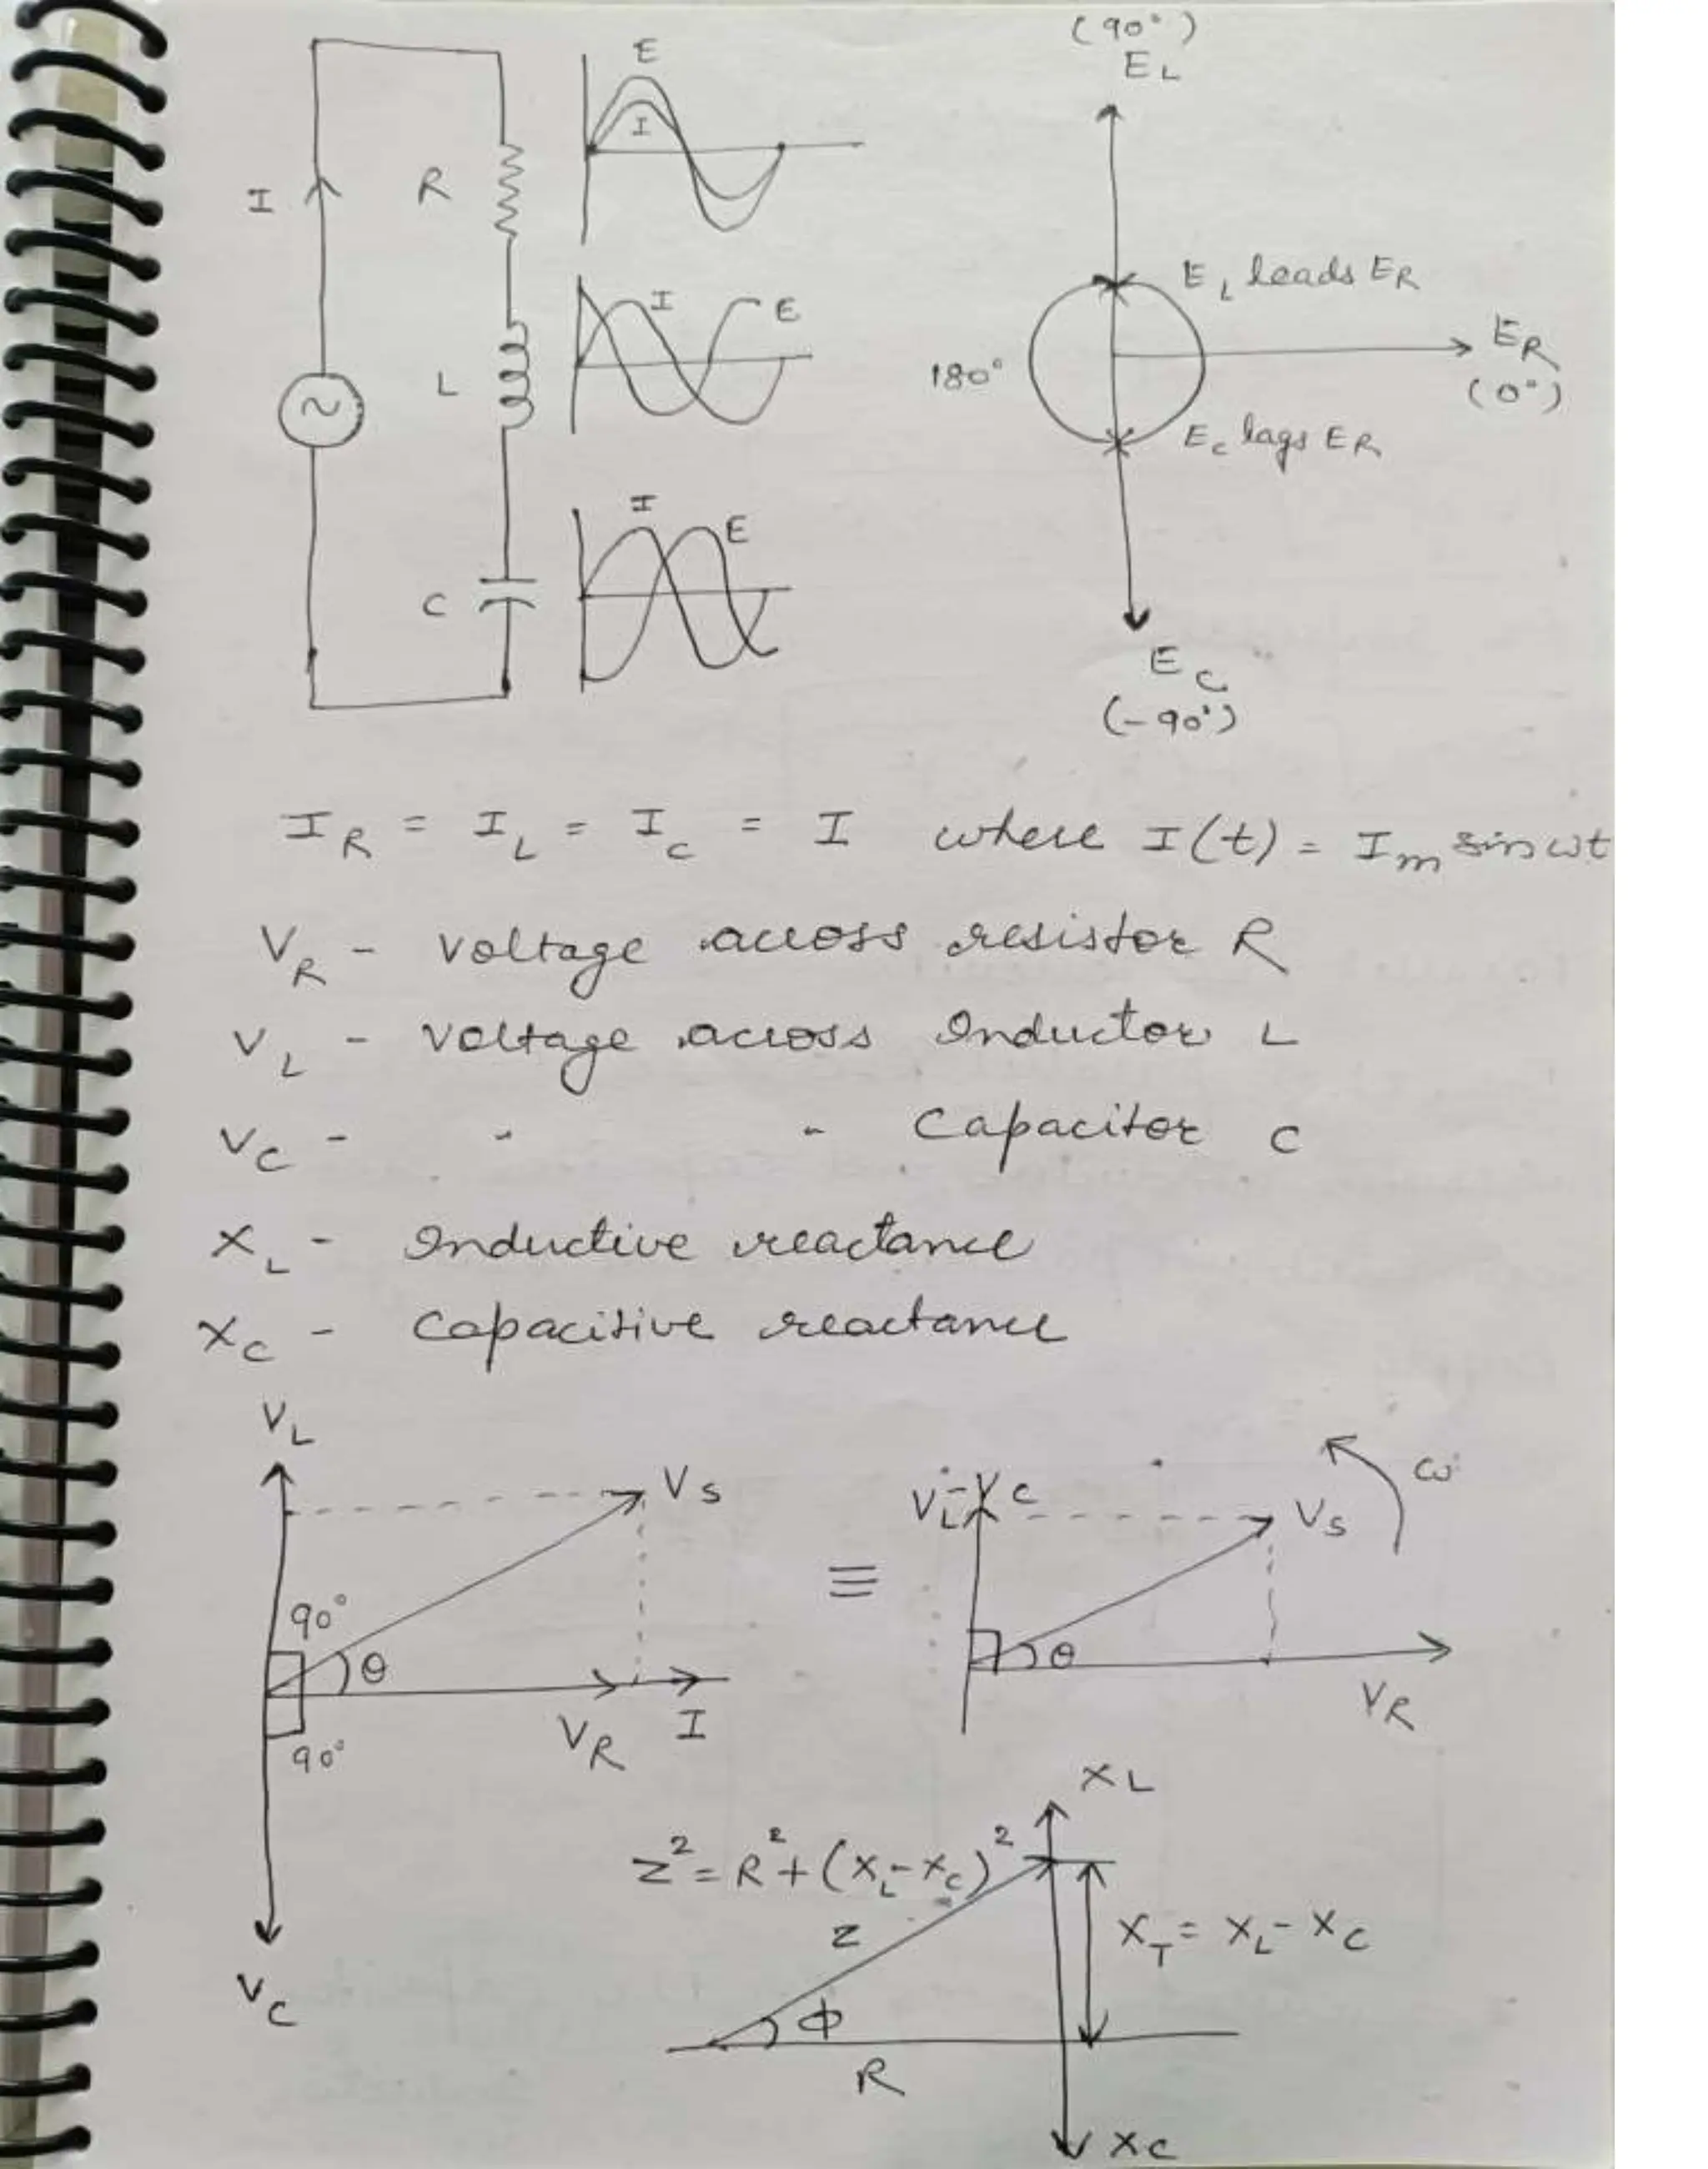 I
R
L
C
~
E
I
I
E
I
E
(90°)
E_L
E_L leads E_R
180°
E_R
(0°)
E_C lags E_R
E_C
(-90°)
I_R = I_L = I_C = I where I(t) = I_m sin ωt
V_R - Voltage across resistor R
V_L - Voltage across Inductor L
V_C - - - Capacitor C
X_L - Inductive reactance
X_C - Capacitive reactance
V_L
V_S
90°
θ
90°
V_R I
V_C
≡
V_L-V_C
V_S
ω
θ
V_R
X_L
Z² = R² + (X_L - X_C)²
Z
X_T = X_L - X_C
φ
R
X_C